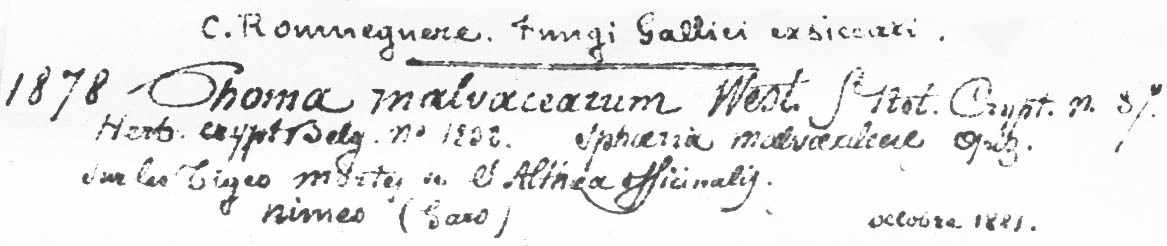 C. Roumeguere. Fungi Gallici exsiccati.
1878 Phoma malvacearum West. Not. Crypt. n.
Herb. crypt Belg. no Sphæria Opiz.
sur les Tiges mortes de l'Althea officinalis.
Nimes (Gard)
octobre 1881.